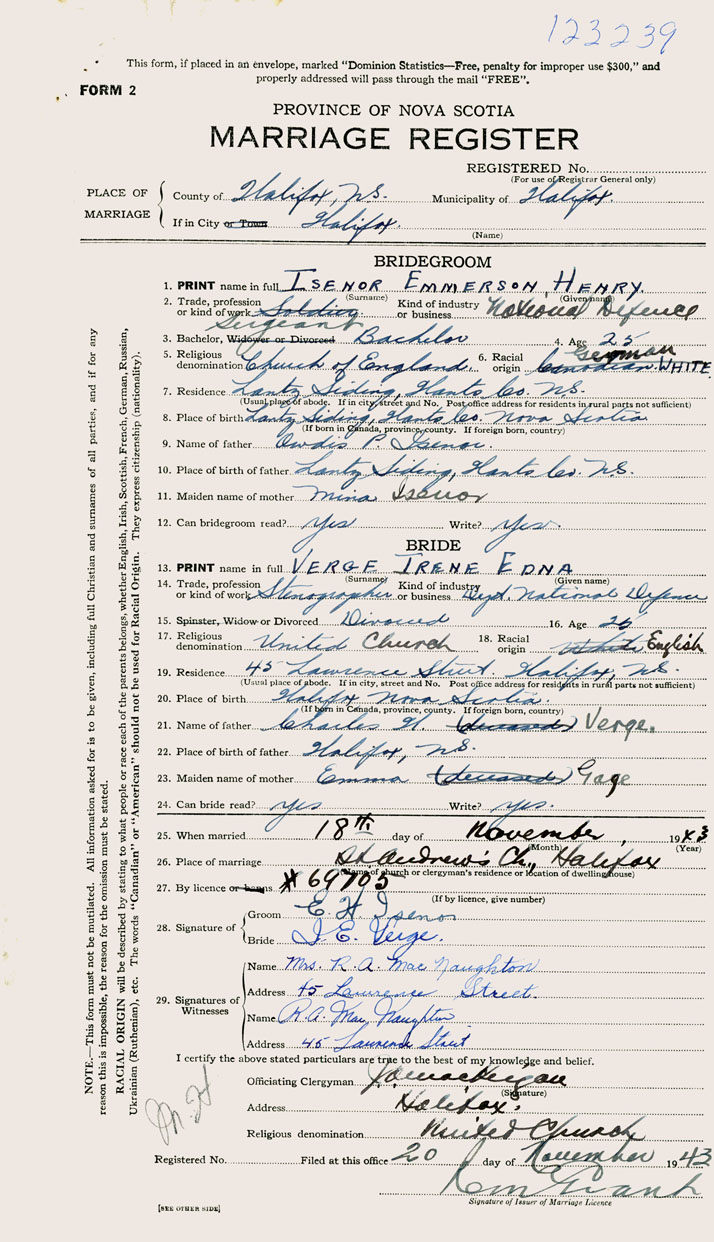 123239
This form, if placed in an envelope, marked "Dominion Statistics—Free, penalty for improper use $300," and
properly addressed will pass through the mail "FREE".
FORM 2
PROVINCE OF NOVA SCOTIA
MARRIAGE REGISTER
REGISTERED No.
(For use of Registrar General only)
PLACE OF MARRIAGE
County of Halifax, N.S. Municipality of Halifax.
If in City or Town Halifax.
(Name)
BRIDEGROOM
1. PRINT name in full ISENOR EMMERSON HENRY.
(Surname) (Given name)
2. Trade, profession or kind of work Soldier Sergeant Kind of industry or business National Defence
3. Bachelor, Widower or Divorced Bachelor 4. Age 25
5. Religious denomination Church of England. 6. Racial origin Canadian. German WHITE
7. Residence Lantz Siding, Hants Co. N.S.
(Usual place of abode. If in city, street and No. Post office address for residents in rural parts not sufficient)
8. Place of birth Lantz Siding, Hants Co. Nova Scotia
(If born in Canada, province, county. If foreign born, country)
9. Name of father Owdis P. Isenor.
10. Place of birth of father Lantz Siding, Hants Co. N.S.
11. Maiden name of mother Mina Isenor
12. Can bridegroom read? Yes Write? Yes.
BRIDE
13. PRINT name in full VERGE IRENE EDNA
(Surname) (Given name)
14. Trade, profession or kind of work Stenographer Kind of industry or business Dept. National Defence
15. Spinster, Widow or Divorced Divorced 16. Age 25
17. Religious denomination United Church 18. Racial origin White English
19. Residence 45 Lawrence Street Halifax, N.S.
(Usual place of abode. If in city, street and No. Post office address for residents in rural parts not sufficient)
20. Place of birth Halifax Nova Scotia.
(If born in Canada, province, county. If foreign born, country)
21. Name of father Charles W. (deceased) Verge.
22. Place of birth of father Halifax, N.S.
23. Maiden name of mother Emma (deceased) Gage
24. Can bride read? yes Write? yes.
25. When married 18th day of November, 1943
(Month) (Year)
26. Place of marriage St. Andrew's Ch., Halifax
(Name of church or clergyman's residence or location of dwelling house)
27. By licence or banns # 69705
(If by licence, give number)
28. Signature of
Groom E. H Isenor
Bride I. E. Verge.
29. Signatures of Witnesses
Name Mrs. R. A. MacNaughton
Address 45 Lawrence Street.
Name R.A. MacNaughton
Address 45 Lawrence Street
I certify the above stated particulars are true to the best of my knowledge and belief.
Officiating Clergyman
(Signature)
Address Halifax.
Religious denomination United Church
Registered No. Filed at this office 20 day of November 1943
Signature of Issuer of Marriage Licence
[SEE OTHER SIDE]
NOTE.—This form must not be mutilated. All information asked for is to be given, including full Christian and surnames of all parties, and if for any
reason this is impossible, the reason for the omission must be stated.
RACIAL ORIGIN will be described by stating to what people or race each of the parents belongs, whether English, Irish, Scottish, French, German, Russian,
Ukrainian (Ruthenian), etc. The words "Canadian" or "American" should not be used for Racial Origin. They express citizenship (nationality).